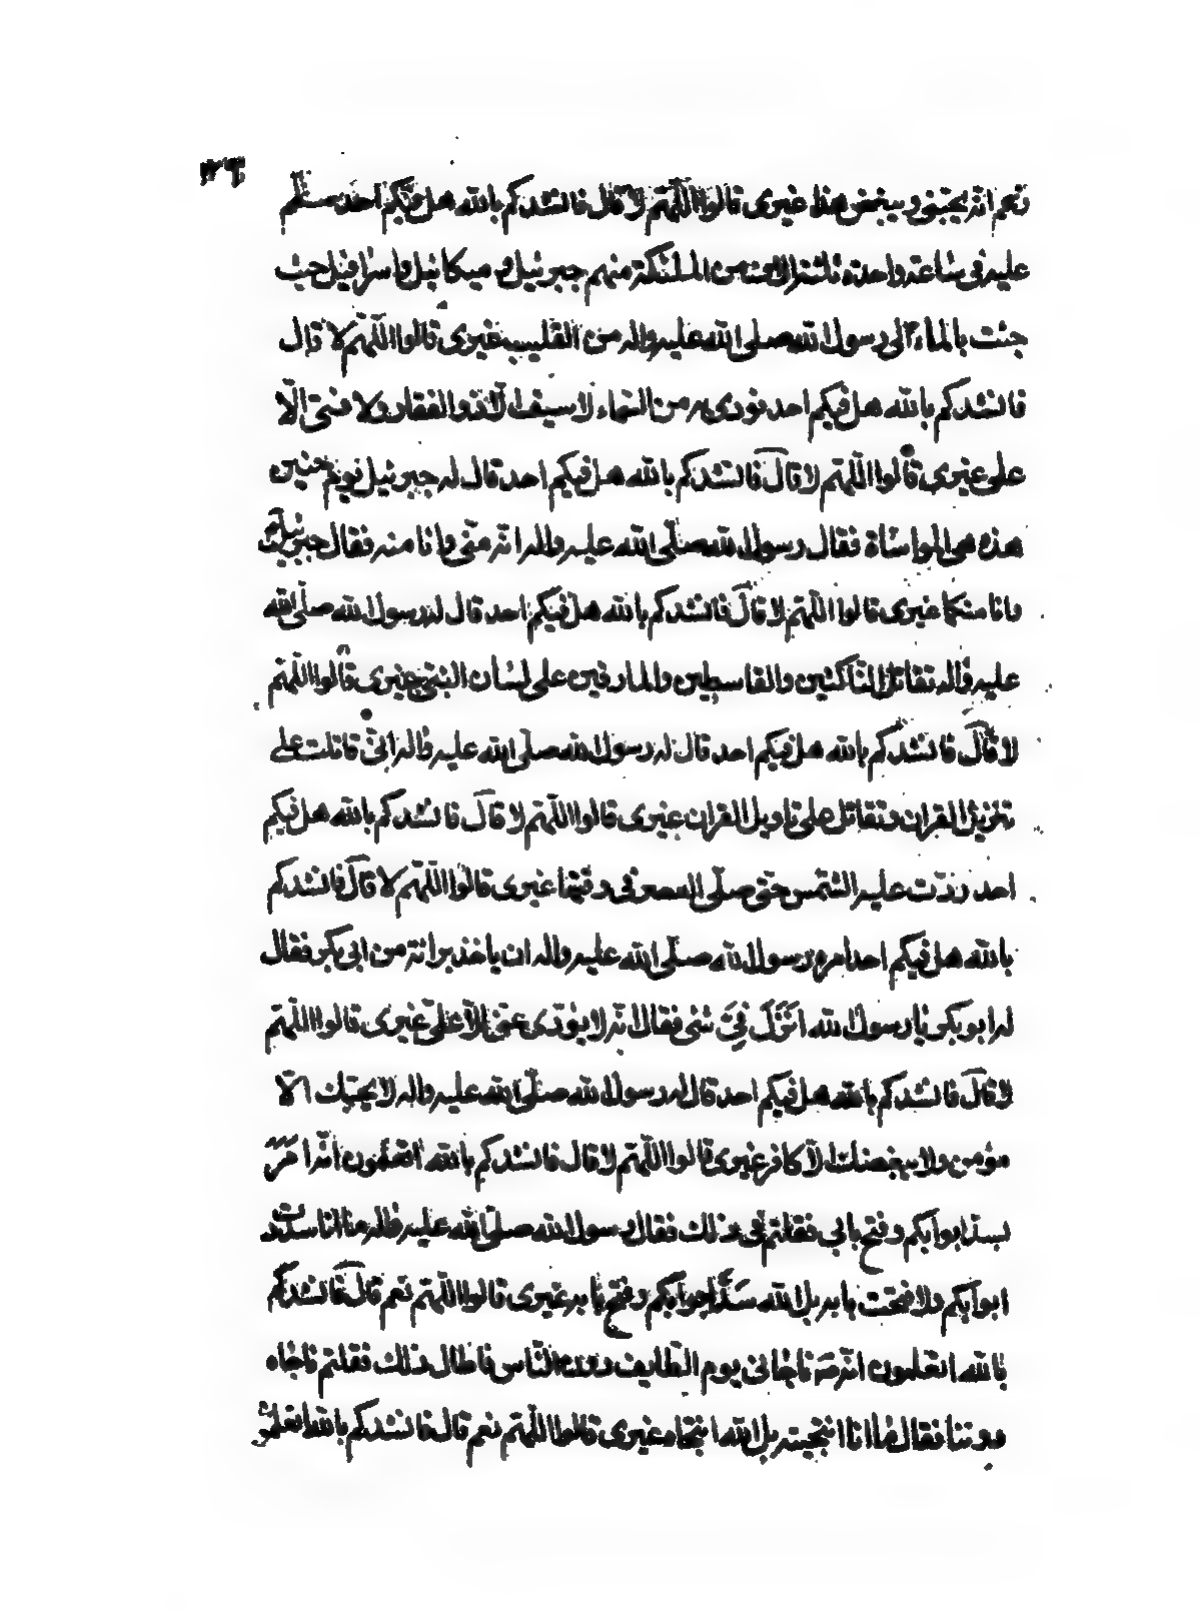 ١٣٦
نعم انه يحبني ويبغض هذا غيري قالوا اللّهمّ لا قال فانشدكم بالله هل فيكم احد سلّم
عليه في ساعة واحدة ثلثة الاف من الملئكة منهم جبرئيل و ميكائيل واسرافيل حيث
جئت بالماء الى رسول الله صلى الله عليه واله من القليب غيري قالوا اللّهمّ لا قال
فانشدكم بالله هل فيكم احد نودي به من السماء لا سيف الّا ذو الفقار ولا فتى الّا
على غيري قالوا اللّهمّ لا قال فانشدكم بالله هل فيكم احد قال له جبرئيل يوم حنين
هذه هي المواساة فقال رسول الله صلّى الله عليه واله انّه منّي وانا منه فقال جبرئيل
وانا منكما غيري قالوا اللّهمّ لا قال فانشدكم بالله هل فيكم احد قال له رسول الله صلّى الله
عليه واله تقاتل النّاكثين والقاسطين والمارقين على لسان النبي غيري قالوا اللّهمّ
لا قال فانشدكم بالله هل فيكم احد قال له رسول الله صلّى الله عليه واله انّي قاتلت على
تنزيل القران وتقاتل على تاويل القران غيري قالوا اللّهمّ لا قال فانشدكم بالله هل فيكم
احد ردّت عليه الشّمس حتى صلّى العصر في وقتها غيري قالوا اللّهمّ لا قال فانشدكم
بالله هل فيكم احد امره رسول الله صلّى الله عليه واله ان ياخذ براءة من ابي بكر فقال
له ابو بكر يا رسول الله اَنَزَلَ فِيَّ شيء فقال انّه لا يؤدي عنّي الّا عليّ غيري قالوا اللّهمّ
لا قال فانشدكم بالله هل فيكم احد قال له رسول الله صلّى الله عليه واله لا يحبّك الّا
مؤمن ولا يبغضك الّا كافر غيري قالوا اللّهمّ لا قال فانشدكم بالله اتعلمون انّه امر
بسدّ ابوابكم وفتح بابي فقلتم في ذلك فقال رسول الله صلّى الله عليه واله ما انا سددت
ابوابكم ولا فتحت بابه بل الله سَدَّ ابوابكم وفتح بابه غيري قالوا اللّهمّ نعم قال فانشدكم
بالله اتعلمون انّه ناجاني يوم الطّايف دون النّاس فاطال ذلك فقلتم ناجاه
دوننا فقال ما انا انتجيته بل الله انتجاه غيري قالوا اللّهمّ نعم قال فانشدكم بالله اتعلمون